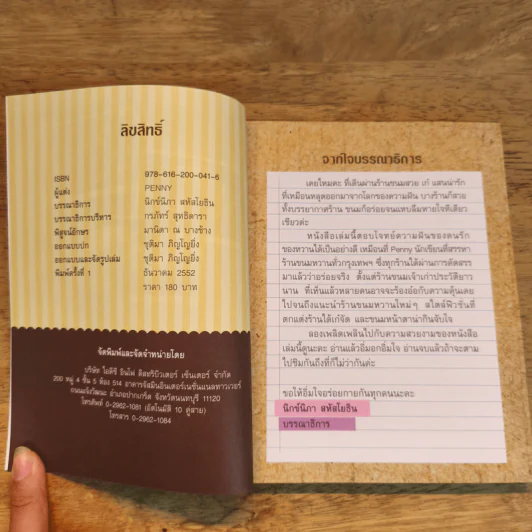 ลิขสิทธิ์
ISBN 978-616-200-041-6
ผู้แต่ง PENNY
บรรณาธิการ นิกข์นิภา สหัสโยธิน
บรรณาธิการบริหาร กรภัทร์ สุทธิดารา
พิสูจน์อักษร มานิตา ณ บางช้าง
ออกแบบปก ชุติมา ภิญโญยิ่ง
ออกแบบและจัดรูปเล่ม ชุติมา ภิญโญยิ่ง
พิมพ์ครั้งที่ 1 ธันวาคม 2552
ราคา 180 บาท
จัดพิมพ์และจัดจำหน่ายโดย
บริษัท ไอดีซี อินโฟ ดิสทริบิวเตอร์ เซ็นเตอร์ จำกัด
200 หมู่ 4 ชั้น 5 ห้อง 514 อาคารจัสมินอินเตอร์เนชั่นแนลทาวเวอร์
ถนนแจ้งวัฒนะ อำเภอปากเกร็ด จังหวัดนนทบุรี 11120
โทรศัพท์ 0-2962-1081 (อัตโนมัติ 10 คู่สาย)
โทรสาร 0-2962-1084
จากใจบรรณาธิการ
เคยไหมคะ ที่เดินผ่านร้านขนมสวย เก๋ แสนน่ารัก
ที่เหมือนหลุดออกมาจากโลกของความฝัน บางร้านก็สวย
ทั้งบรรยากาศร้าน ขนมก็อร่อยจนแทบลืมหายใจทีเดียว
เชียวค่ะ
หนังสือเล่มนี้ตอบโจทย์ความฝันของคนรัก
ของหวานได้เป็นอย่างดี เหมือนที่ Penny นักเขียนที่สรรหา
ร้านขนมหวานทั่วกรุงเทพฯ ซึ่งทุกร้านได้ผ่านการคัดสรร
มาแล้วว่าอร่อยจริง ตั้งแต่ร้านขนมเจ้าเก่าประวัติยาว
นาน ที่เห็นแล้วหลายคนอาจจะร้องอ๋อกับความคุ้นเคย
ไปจนถึงแนะนำร้านขนมหวานใหม่ๆ สไตล์ฟิวชั่นที่
ตกแต่งร้านได้เก๋จัด และขนมหน้าตาน่ากินจับใจ
ลองเพลิดเพลินไปกับความสวยงามของหนังสือ
เล่มนี้ดูนะคะ อ่านแล้วอิ่มอกอิ่มใจ อ่านจบแล้วถ้าจะตาม
ไปชิมกันถึงที่ก็ไม่ว่ากันค่ะ
ขอให้อิ่มใจอร่อยกายกันทุกคนนะคะ
นิกข์นิภา สหัสโยธิน
บรรณาธิการ